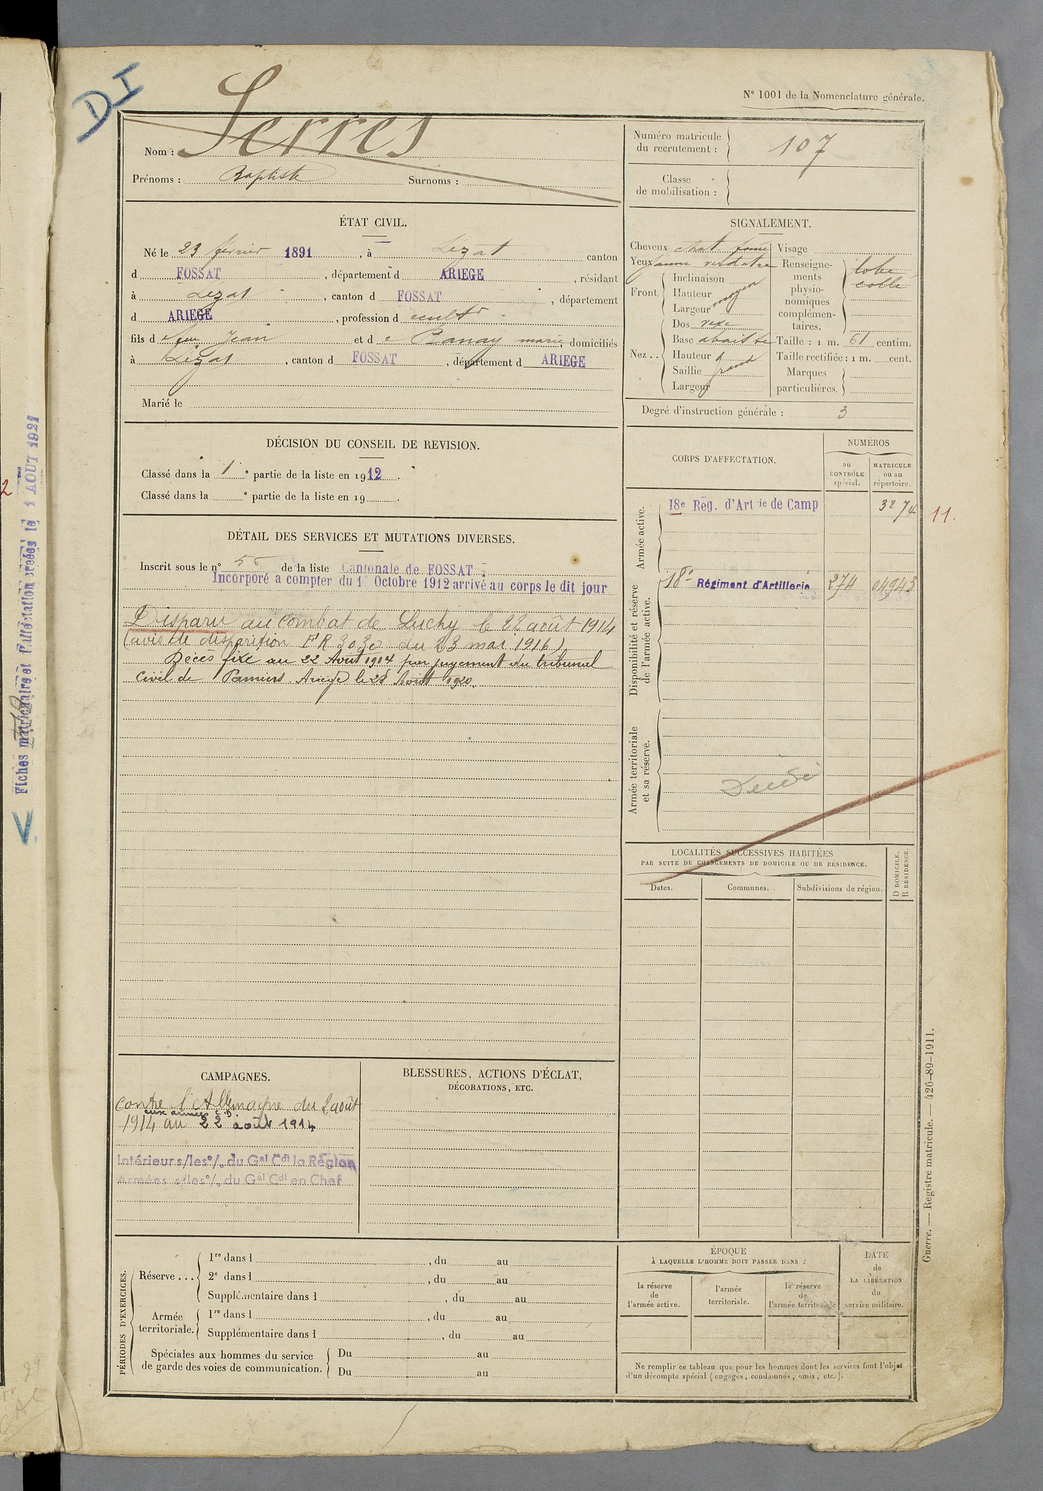 DI
N° 1001 de la Nomenclature générale.
Nom : Serres
Prénoms : Baptiste Surnoms :
Numéro matricule du recrutement : 107
Classe de mobilisation :
ÉTAT CIVIL.
Né le 23 février 1891, à Lézat canton
d FOSSAT, département d ARIEGE, résidant
à Lézat, canton d FOSSAT, département
d ARIEGE, profession d cultr
fils d e feu Jean et d e Banay marie, domiciliés
à Lézat, canton d FOSSAT, département d ARIEGE
Marié le
SIGNALEMENT.
Cheveux chat foncé
Yeux jaune verdatre
Front.
Inclinaison
Hauteur moyen
Largeur
Nez..
Dos rexe
Base abaissée
Hauteur
Saillie grand
Largeur
Visage
Renseignements physionomiques complémentaires. lobe collé
Taille : 1 m. 61 centim.
Taille rectifiée : 1 m. cent.
Marques particulières.
Degré d'instruction générale : 3
DÉCISION DU CONSEIL DE REVISION.
Classé dans la 1e partie de la liste en 1912.
Classé dans la e partie de la liste en 19 .
DÉTAIL DES SERVICES ET MUTATIONS DIVERSES.
Inscrit sous le n° 56 de la liste Cantonale de FOSSAT
Incorporé a compter du 1 Octobre 1912 arrivé au corps le dit jour
Disparu au combat de Luchy le 22 août 1914
(avis de disparition FR 3030 du 23 mai 1916)
Décès fixé au 22 Août 1914 par jugement du tribunal
Civil de Pamiers Ariège le 28 Août 1920.
CORPS D'AFFECTATION.
NUMÉROS
au CONTRÔLE spécial.
MATRICULE ou au répertoire.
Armée active.
18e Rég. d'Artie de Camp 3274
11.
Disponibilité et réserve de l'armée active.
18e Régiment d'Artillerie 274 04943
Armée territoriale et sa réserve.
LOCALITÉS SUCCESSIVES HABITÉES
PAR SUITE DE CHANGEMENTS DE DOMICILE OU DE RÉSIDENCE.
Dates.
Communes.
Subdivisions de région.
D DOMICILE.
R RÉSIDENCE
CAMPAGNES.
contre l'Allemagne du 2 août
aux armées
1914 au 22 août 1914
Intérieur s/les o/ du Gal Cdt la Région
Armées s/les o/ du Gal Cdt en Chef
BLESSURES, ACTIONS D'ÉCLAT,
DÉCORATIONS, ETC.
PÉRIODES D'EXERCICES.
Réserve ...
1re dans l , du au
2e dans l , du au
Supplémentaire dans l , du au
Armée territoriale.
1re dans l , du au
Supplémentaire dans l , du au
Spéciales aux hommes du service
de garde des voies de communication.
Du au
Du au
ÉPOQUE
À LAQUELLE L'HOMME DOIT PASSER DANS :
la réserve de l'armée active.
l'armée territoriale.
la réserve de l'armée territoriale
DATE de LA LIBÉRATION du service militaire.
Ne remplir ce tableau que pour les hommes dont les services font l'objet
d'un décompte spécial (engagés, condamnés, omis, etc.).
Guerre. — Registre matricule. — 426-89-1911.
Fiches matricule et d'affectation créées le 1 AOUT 1921